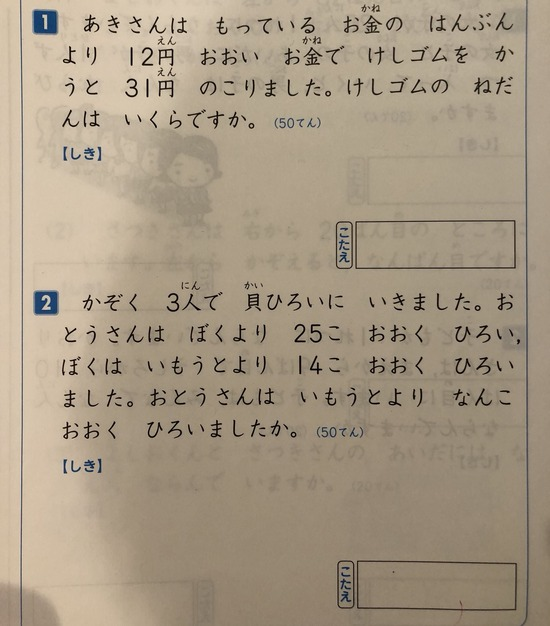 1 あきさんは もっている お金の はんぶん
より 12円 おおい お金で けしゴムを か
うと 31円 のこりました。けしゴムの ねだ
んは いくらですか。(50てん)
【しき】
こたえ
2 かぞく 3人で 貝ひろいに いきました。お
とうさんは ぼくより 25こ おおく ひろい,
ぼくは いもうとより 14こ おおく ひろい
ました。おとうさんは いもうとより なんこ
おおく ひろいましたか。(50てん)
【しき】
こたえ